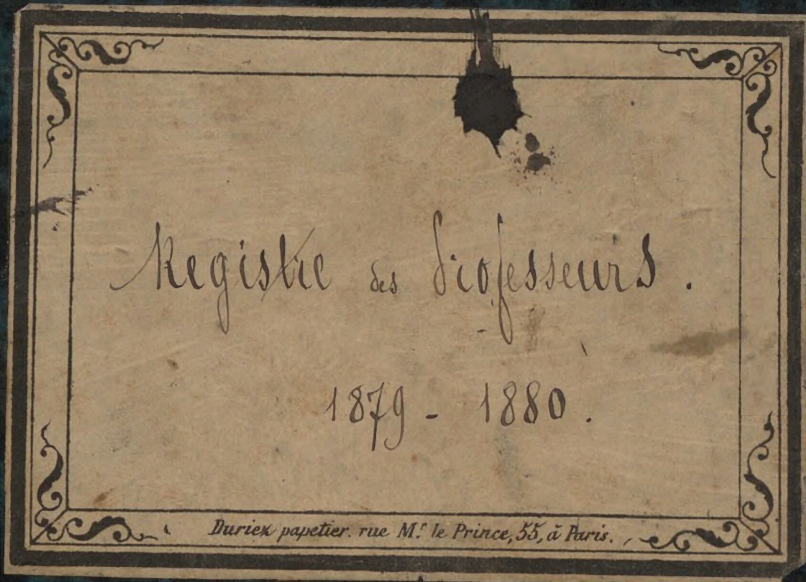 Registre des Professeurs.
1879 - 1880.
Duriez papetier. rue Mr. le Prince, 55, à Paris.